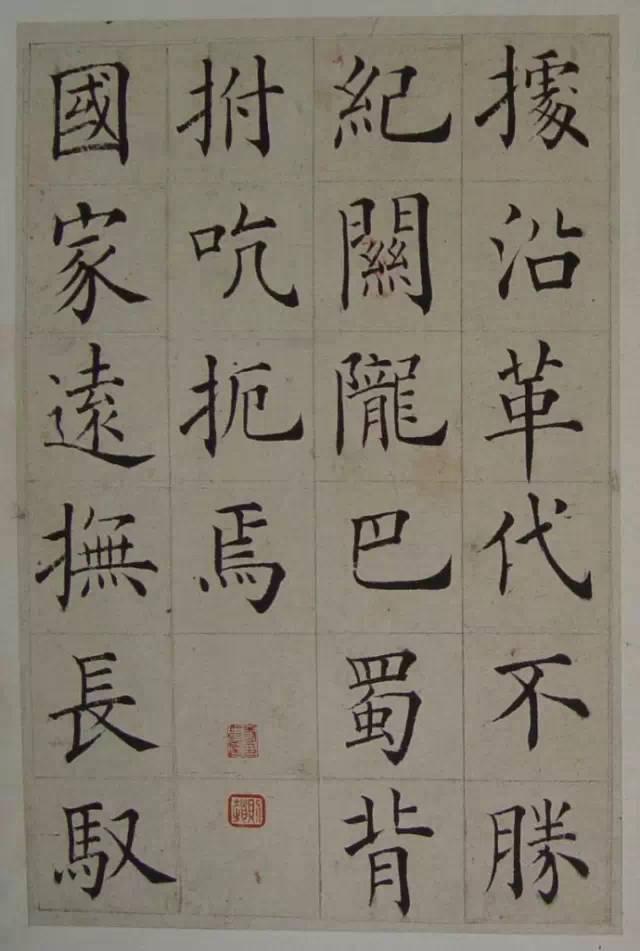 據沿革代不勝
紀關隴巴蜀背
拊吭扼焉
國家遠撫長馭